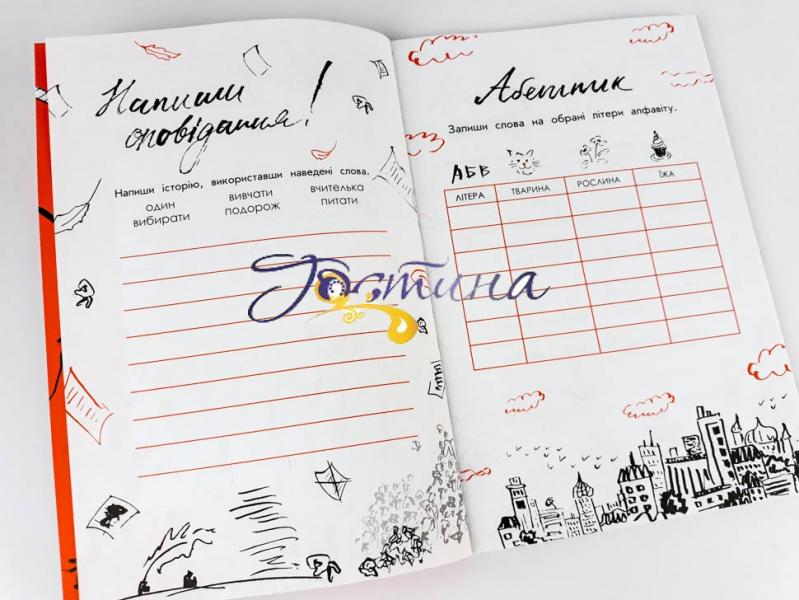 Напиши
оповідання!
Напиши історію, використавши наведені слова.
один вивчати вчителька
вибирати подорож питати
Запиши слова на обрані літери алфавіту.
АБВ
ЛІТЕРА ТВАРИНА РОСЛИНА ЇЖА
Гостина